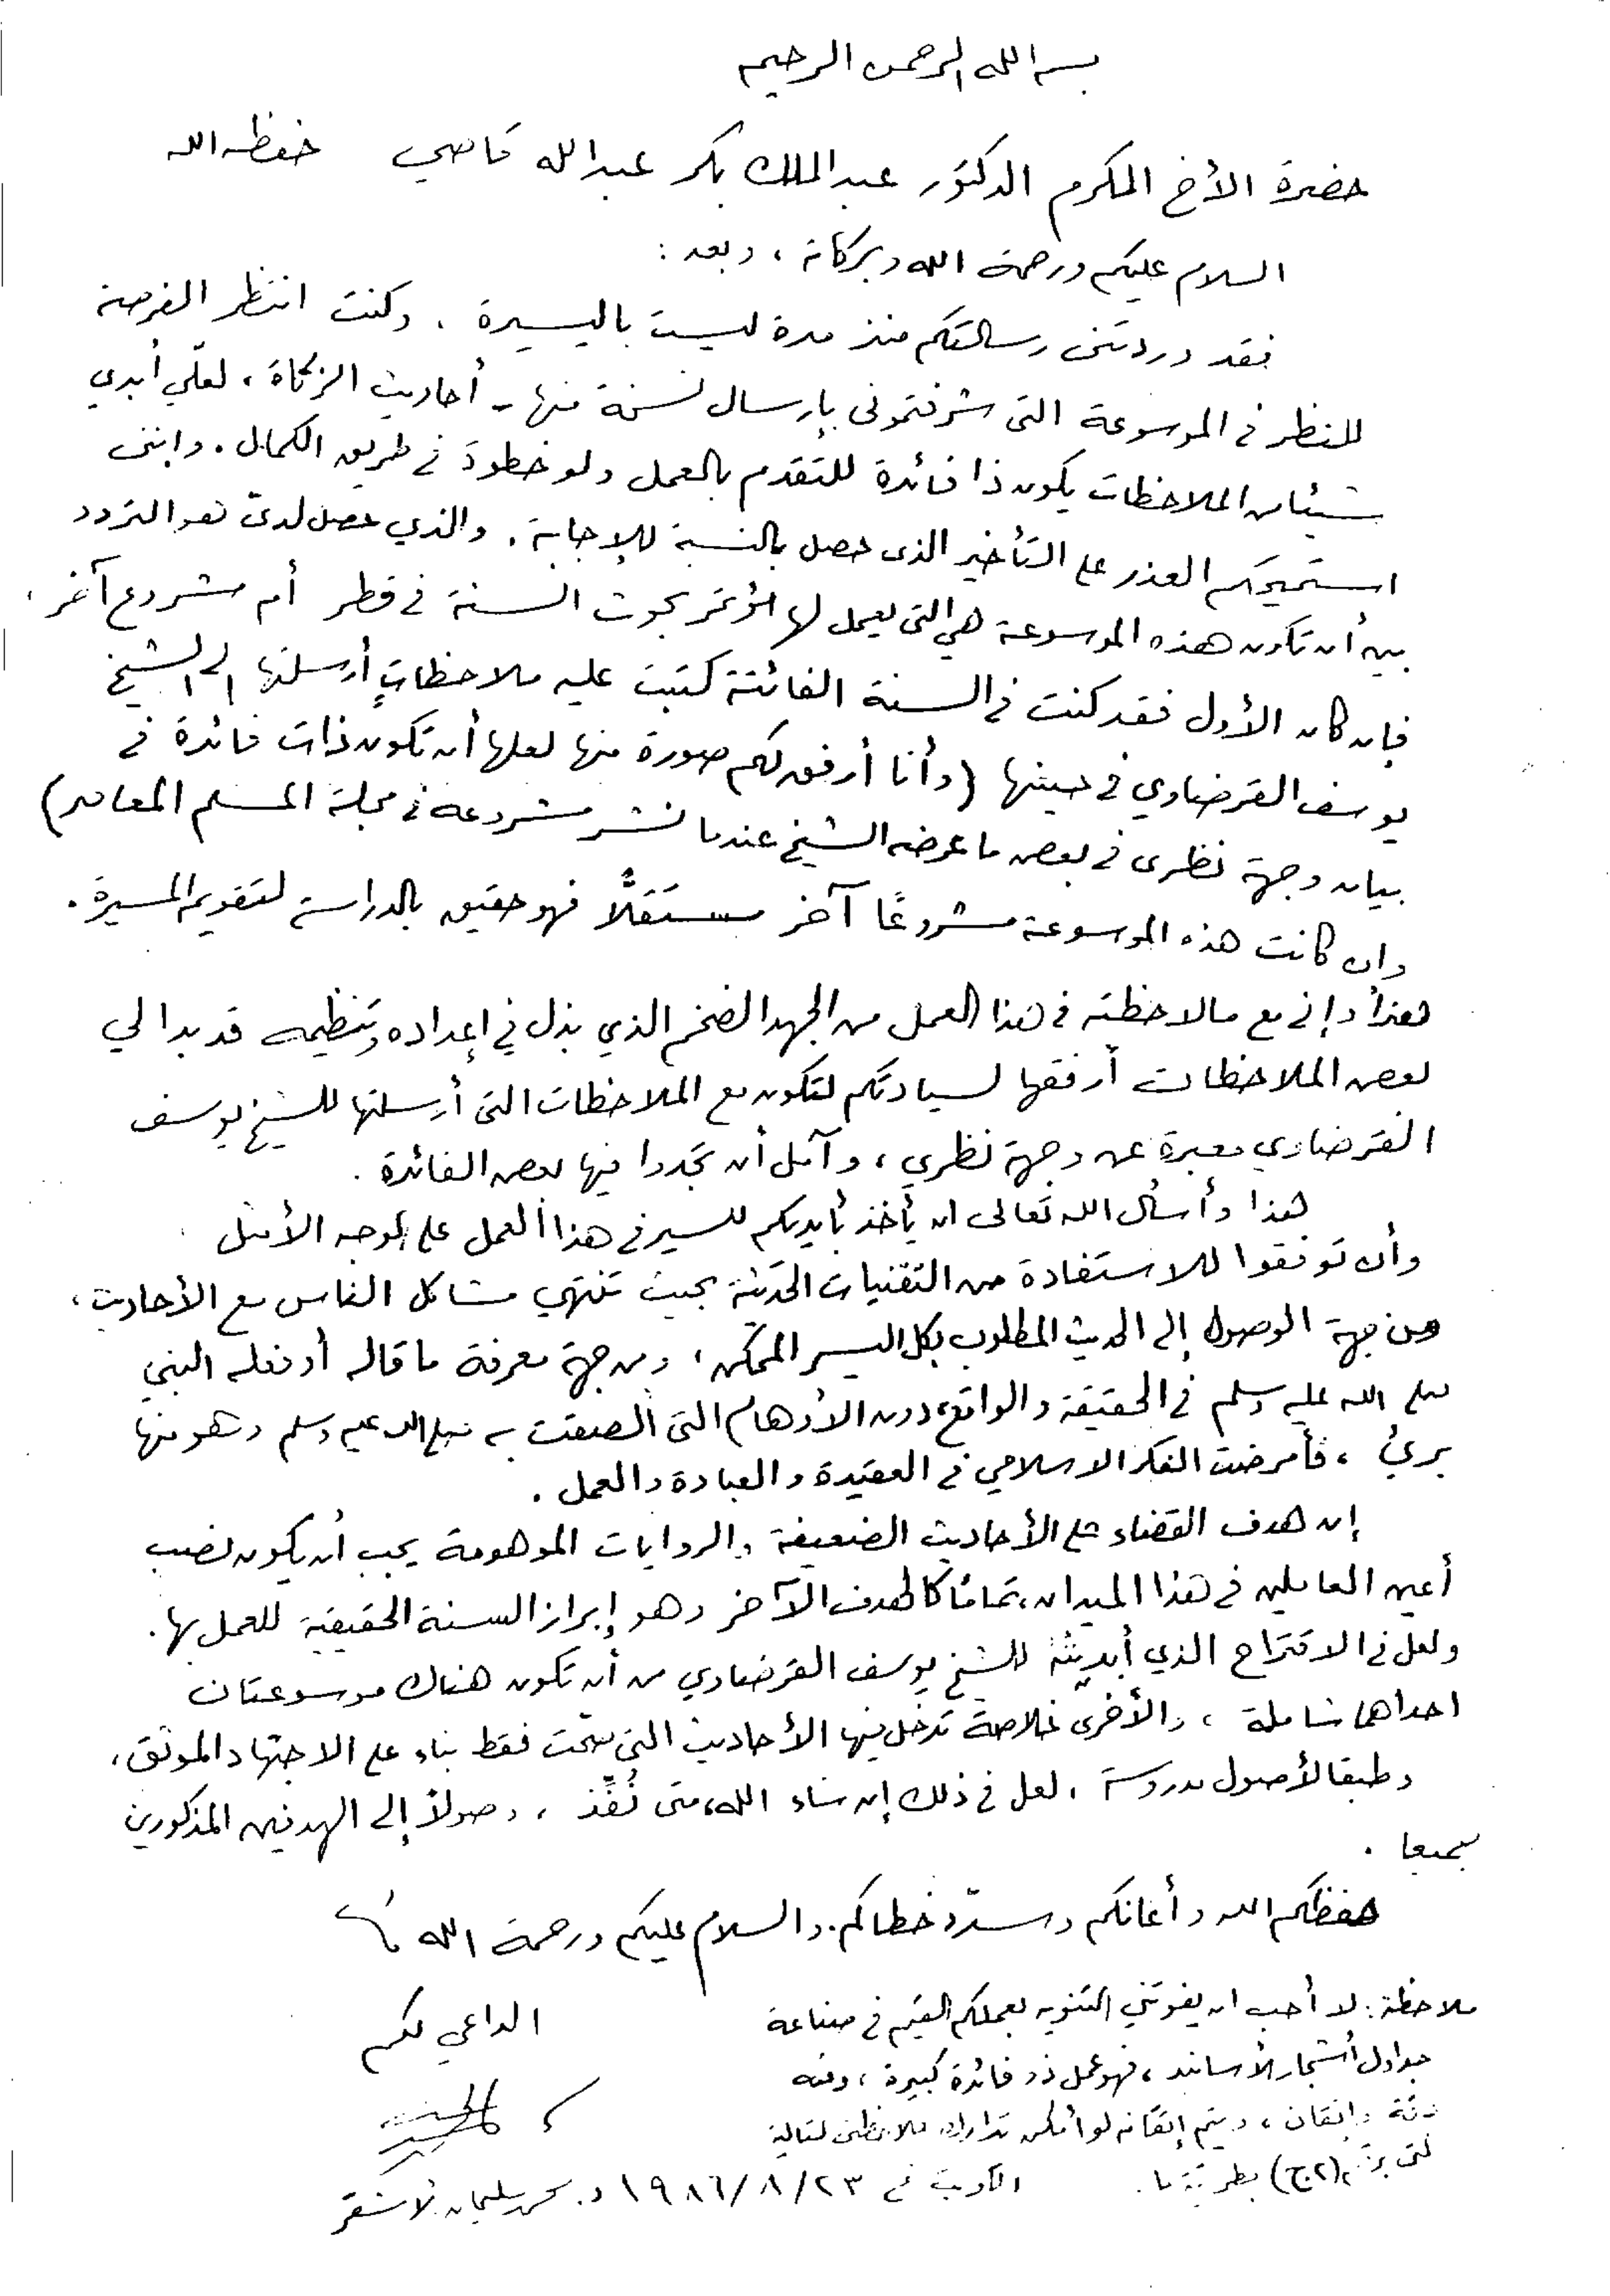 بسم الله الرحمن الرحيم
حضرة الأخ المكرم الدكتور عبدالملك بكر عبدالله قاضي حفظه الله
السلام عليكم ورحمة الله وبركاته ، وبعد :
فقد وردتني رسالتكم منذ مدة ليست باليسيرة . وكنت انتظر الفرصة
للنظر في الموسوعة التي شرفتموني بإرسال نسخة منها - أحاديث الزكاة ، لعلّي أبدي
شيئا من الملاحظات يكون ذا فائدة للتقدم بالعمل ولو خطوة في طريق الكمال . وانني
استميحكم العذر على التأخير الذي حصل بالنسبة للإجابة . والذي حصل لديّ هو التردد
بين أن تكون هذه الموسوعة هي التي يعمل لها مؤتمر بحوث السنة في قطر أم مشروع آخر .
فإن كان الأول فقد كنت في السنة الفائتة كتبت عليه ملاحظاتٍ أرسلتها إلى الشيخ
يوسف القرضاوي في حينها (وأنا أرفق لكم صورة منها لعلها أن تكون ذات فائدة في
بيان وجهة نظري في بعض ما عرضه الشيخ عندما نشر مشروعه في مجلة المسلم المعاصر)
وان كانت هذه الموسوعة مشروعًا آخر مستقلًّا فهو حقيق بالدراسة لتقويم المسيرة .
هذا وإني مع مالاحظته في هذا العمل من الجهد الضخم الذي بذل في إعداده وتنظيمه قد بدا لي
بعض الملاحظات أرفقها لسيادتكم لتكون مع الملاحظات التي أرسلتها للشيخ يوسف
القرضاوي معبرة عن وجهة نظري ، وآمل أن تجدوا فيها بعض الفائدة .
هذا وأسأل الله تعالى ان يأخذ بأيديكم للسير في هذا العمل على الوجه الأمثل
وأن توفقوا للاستفادة من التقنيات الحديثة بحيث تنتهي مشاكل الناس مع الأحاديث ،
من جهة الوصول إلى الحديث المطلوب بكل اليسر الممكن ، ومن جهة معرفة ما قاله أو فعله النبي
صلى الله عليه وسلم في الحقيقة والواقع ، دون الأوهام التي ألصقت به صلى الله عليه وسلم وهو منها
بريئ ، فأمرضت الفكر الاسلامي في العقيدة والعبادة والعمل .
إن هدف القضاء على الأحاديث الضعيفة والروايات الموهومة يجب أن يكون نصب
أعين العاملين في هذا الميدان ، تمامًا كالهدف الآخر وهو إبراز السنة الحقيقية للعمل بها .
ولعل في الاقتراح الذي أبديته للشيخ يوسف القرضاوي من أن تكون هناك موسوعتان
احداهما شاملة ، والأخرى خلاصة تدخل فيها الأحاديث التي صحّت فقط بناء على الاجتهاد الموثق ،
وطبقا لأصول مدروسة ، لعل في ذلك إن شاء الله ، متى نُفِّذ ، وصولاً إلى الهدفين المذكورين
جميعا .
حفظكم الله وأعانكم وسدّد خطاكم . والسلام عليكم ورحمة الله
الداعي لكم
ملاحظة : لا أحب ان يفوتني التنويه بعملكم القيّم في صناعة
جداول أشجار الأسانيد ، فهو عمل ذو فائدة كبيرة ، وفيه
دقة وإتقان ، ويتم إتقانه لو أمكن تدارك ملاحظتي التالية
التي برقم (٢ ج) بطريقة ما .
الكويت في ٢٣/٨/١٩٨٦ د. محمد سليمان الأشقر